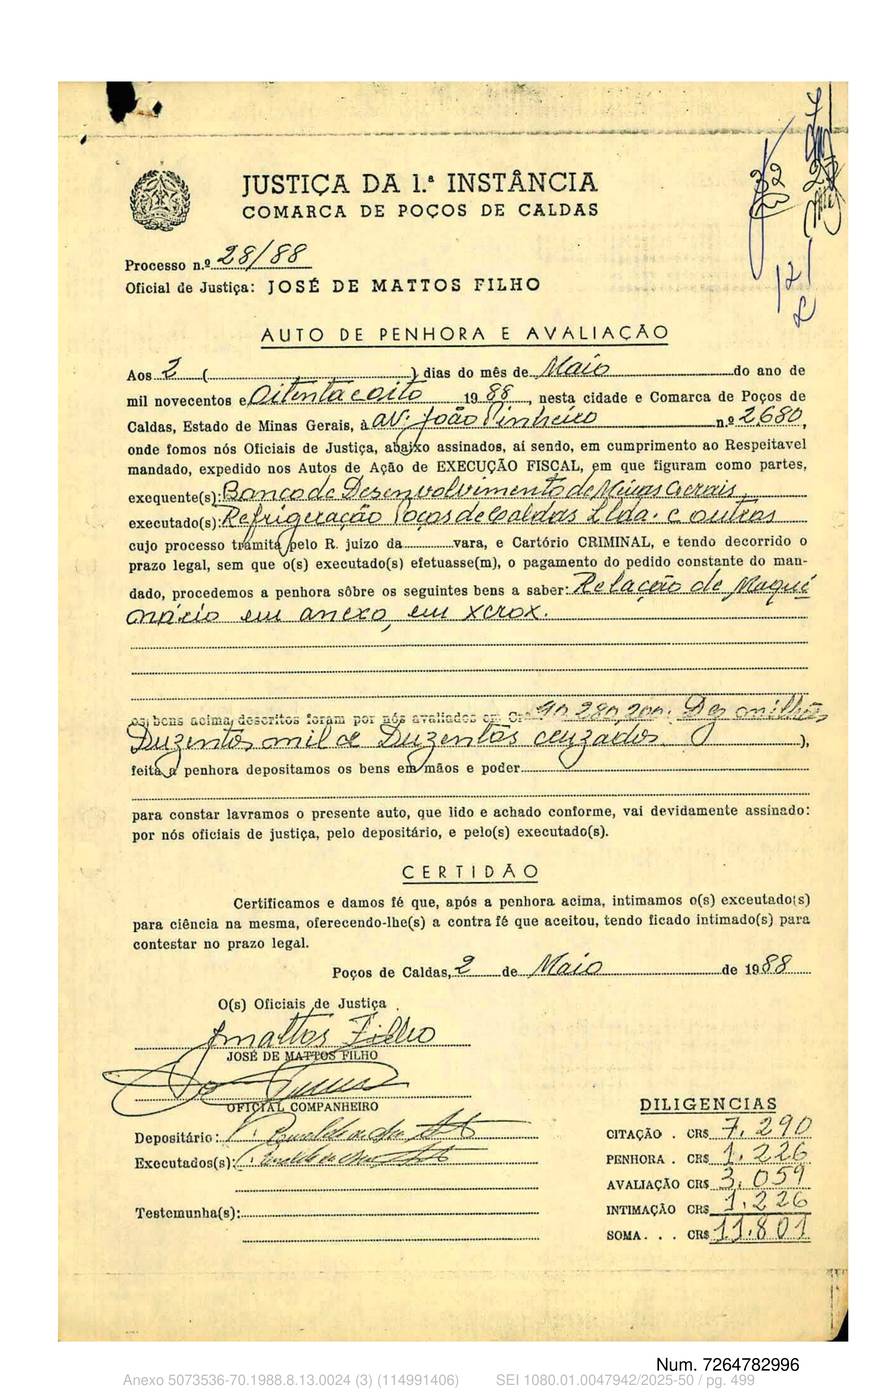 JUSTIÇA DA 1.ª INSTÂNCIA
COMARCA DE POÇOS DE CALDAS
Processo n.º 28/88
Oficial de Justiça: JOSÉ DE MATTOS FILHO
AUTO DE PENHORA E AVALIAÇÃO
Aos 2 ( ) dias do mês de Maio do ano de
mil novecentos e Oitenta e oito 19 88, nesta cidade e Comarca de Poços de
Caldas, Estado de Minas Gerais, à av: João Pinheiro n.º 2.680,
onde fomos nós Oficiais de Justiça, abaixo assinados, aí sendo, em cumprimento ao Respeitavel
mandado, expedido nos Autos de Ação de EXECUÇÃO FISCAL, em que figuram como partes,
exequente(s): Banco de Desenvolvimento de Minas Gerais
executado(s): Refrigeração Poços de Caldas Ltda. e outros
cujo processo tramita pelo R. juizo da vara, e Cartório CRIMINAL, e tendo decorrido o
prazo legal, sem que o(s) executado(s) efetuasse(m), o pagamento do pedido constante do man-
dado, procedemos a penhora sôbre os seguintes bens a saber: Relação de Maqui
nário em anexo, em xerox.
os bens acima descritos foram por nós avaliados em Cr$ 10.280,200. Dez milhões
Duzentos mil e Duzentos cruzados ),
feita a penhora depositamos os bens em mãos e poder
para constar lavramos o presente auto, que lido e achado conforme, vai devidamente assinado:
por nós oficiais de justiça, pelo depositário, e pelo(s) executado(s).
CERTIDÃO
Certificamos e damos fé que, após a penhora acima, intimamos o(s) exceutado(s)
para ciência na mesma, oferecendo-lhe(s) a contra fé que aceitou, tendo ficado intimado(s) para
contestar no prazo legal.
Poços de Caldas, 2 de Maio de 19 88
O(s) Oficiais de Justiça
Jmattos Filho
JOSÉ DE MATTOS FILHO
OFICIAL COMPANHEIRO
DILIGENCIAS
Depositário:
CITAÇÃO . CR$ 7.290
Executados(s):
PENHORA . CR$ 1.226
AVALIAÇÃO CR$ 3.059
Testemunha(s):
INTIMAÇÃO CR$ 1.226
SOMA. . . CR$ 11.801
Num. 7264782996
Anexo 5073536-70.1988.8.13.0024 (3) (114991406) SEI 1080.01.0047942/2025-50 / pg. 499